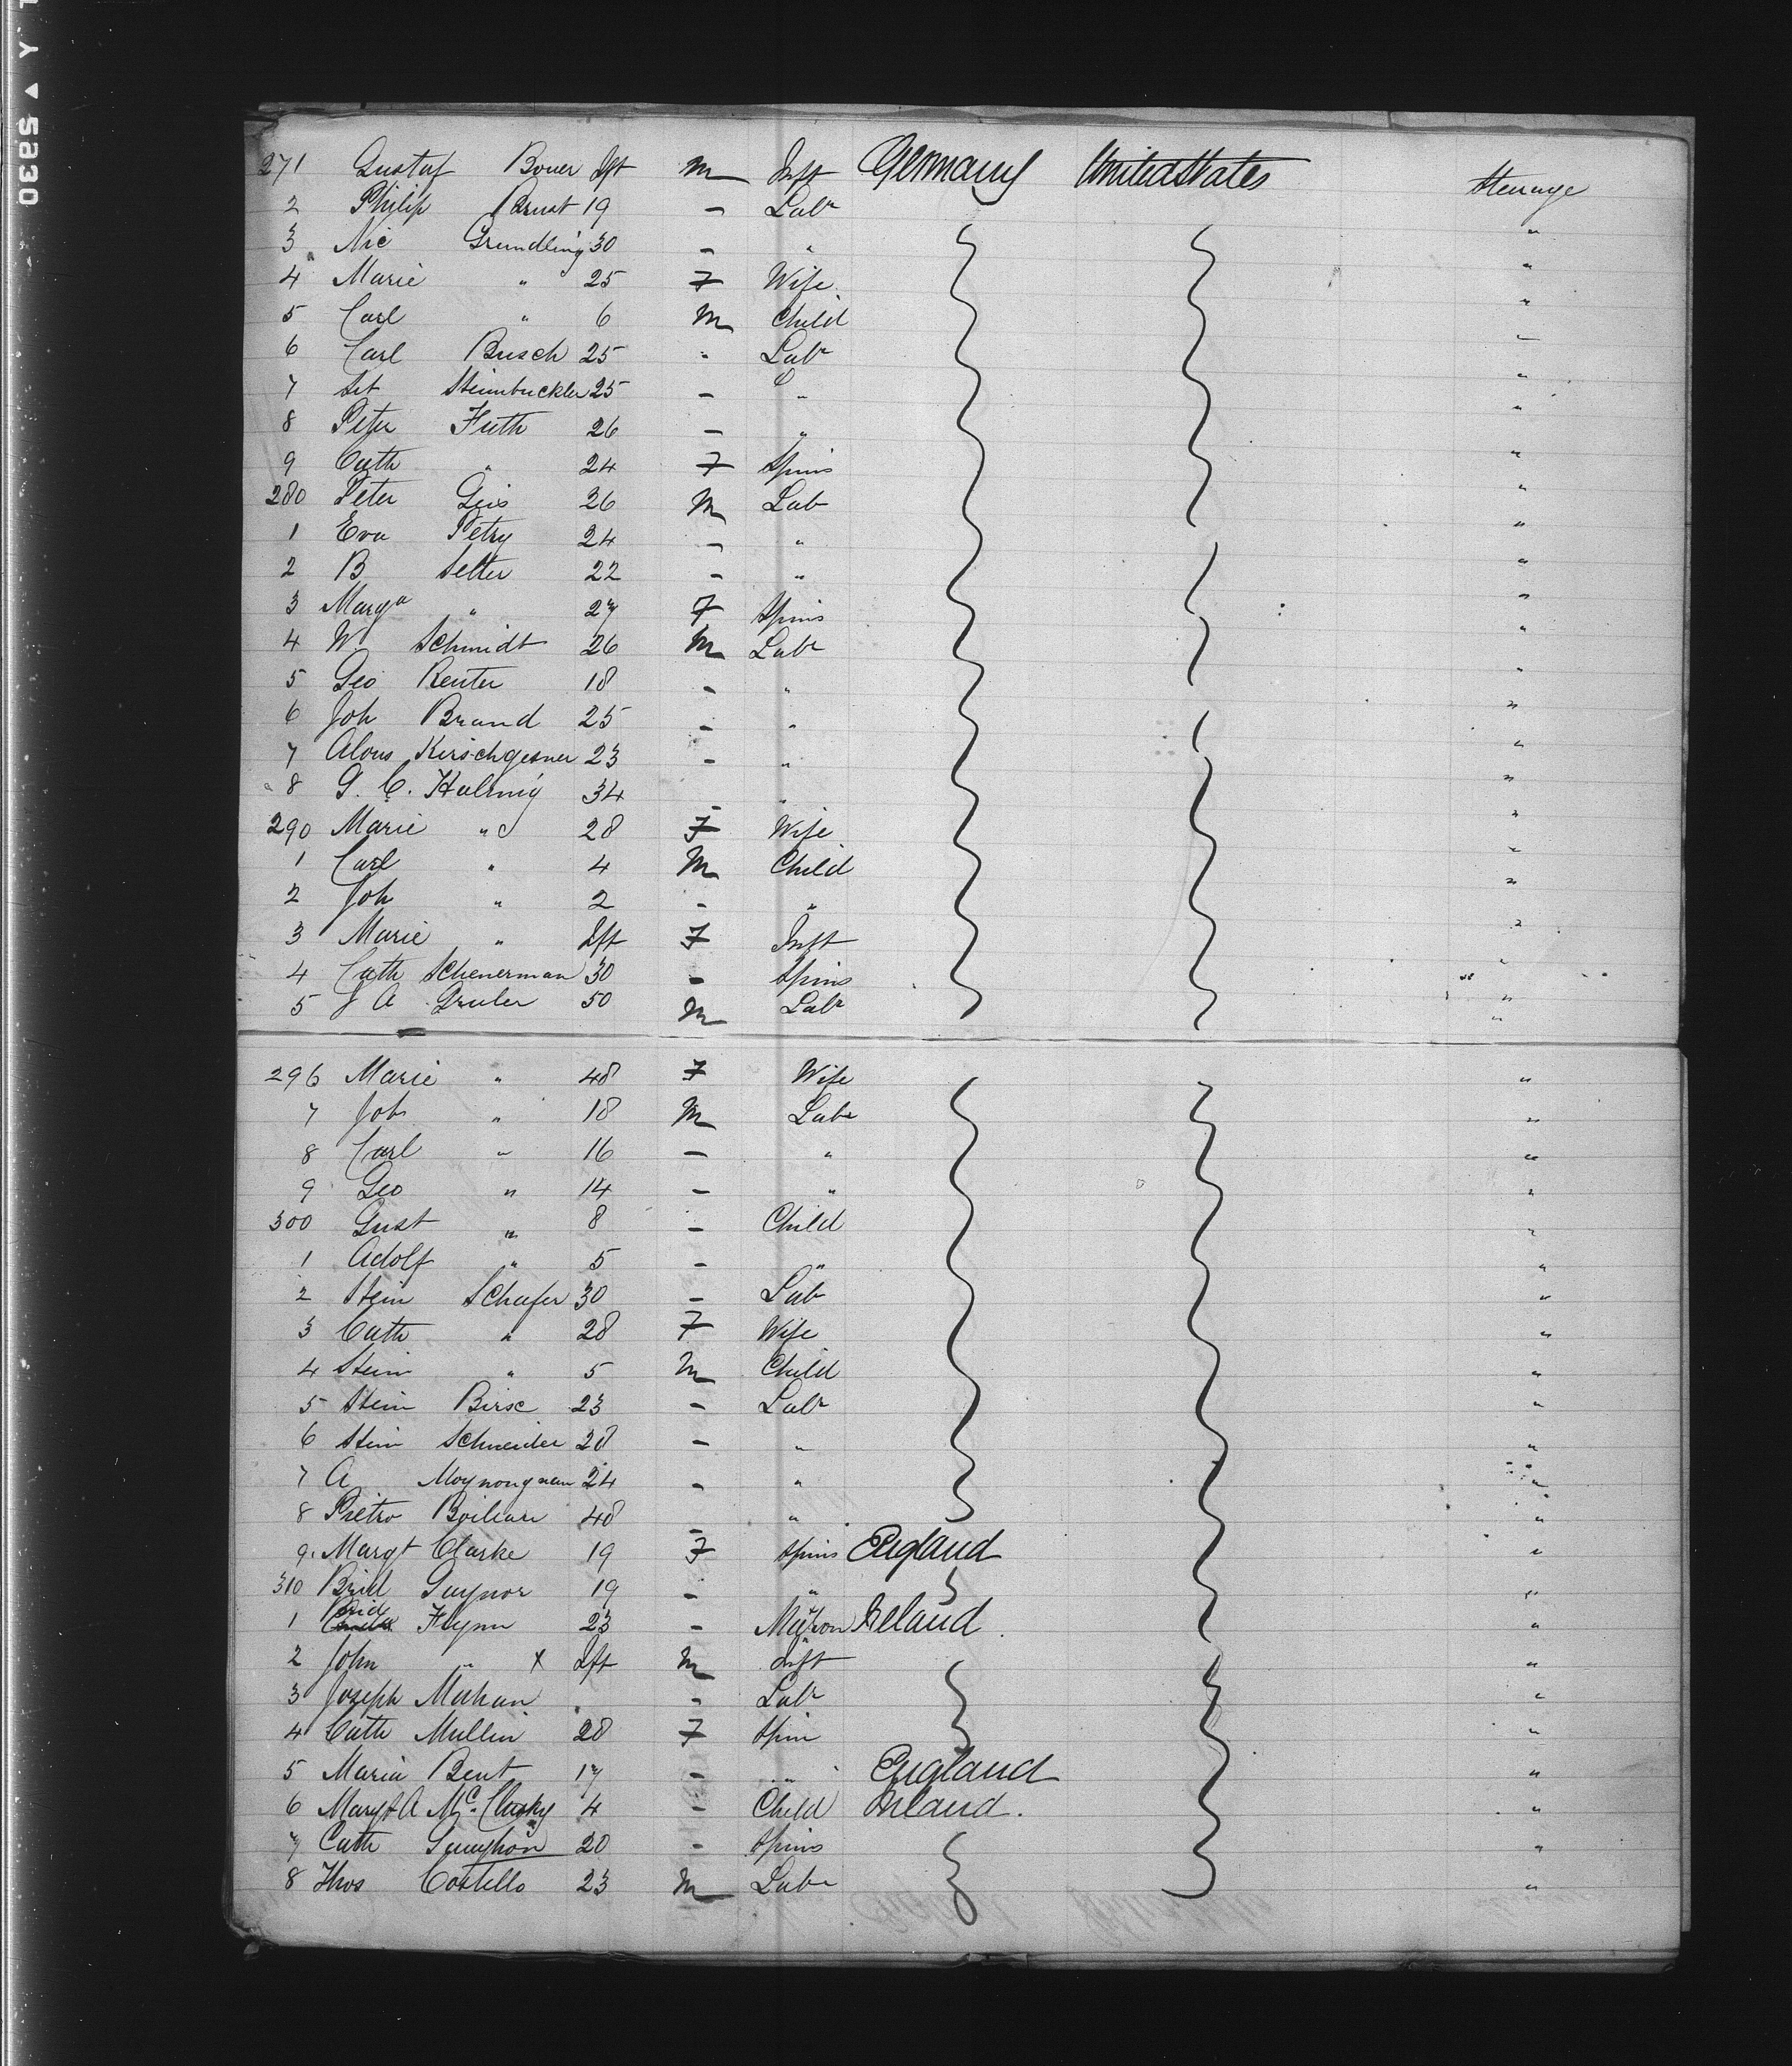 271 Gustaf Bouer Ift M Inft Germany United States Steerage
2 Philip Brust 19 - Labr "
3 Nic Grundling 30 - " "
4 Marie " 25 F Wife "
5 Carl " 6 M Child "
6 Carl Busch 25 " Labr "
7 Steinbuckler 25 - " "
8 Peter Futh 26 - " "
9 Cath " 24 F Spins "
280 Peter Geis 26 M Lab "
1 Eva Petry 24 - " "
2 B Selter 22 - " "
3 Marga " 27 F Spins "
4 W. Schmidt 26 M Labr "
5 Geo Reuter 18 - " "
6 Joh Brand 25 - " "
7 Alous Kirschgesner 23 - " "
8 G. C. Halmig 34 - " "
290 Marie " 28 F Wife "
1 Carl " 4 M Child "
2 Joh " 2 - " "
3 Marie " Ift F Inft "
4 Cath Schenerman 30 - Spins "
5 J A Gruler 50 M Labr "
296 Marie " 48 F Wife "
7 Joh " 18 M Labr "
8 Carl " 16 - " "
9 Geo " 14 - " "
300 Gust " 8 - Child "
1 Adolf " 5 - " "
2 Stein Schafer 30 - Lab "
3 Cath " 28 F Wife "
4 Stein " 5 M Child "
5 Stein Birse 23 - Labr "
6 Stein Schneider 28 - " "
7 A 24 - " "
8 Pietro 48 - " "
9. Margt Clarke 19 F Spins England "
310 Brid Gaynor 19 - " "
1 Brid Flynn 23 - Matron Ireland "
2 John " X Ift M Inft "
3 Joseph Mechan - Labr "
4 Cath Mullin 28 F Spin "
5 Maria Bent 17 - " England "
6 Margt A McClusky 4 - Child Ireland. "
7 Cath 20 - Spins "
8 Thos Costello 23 M Labr "